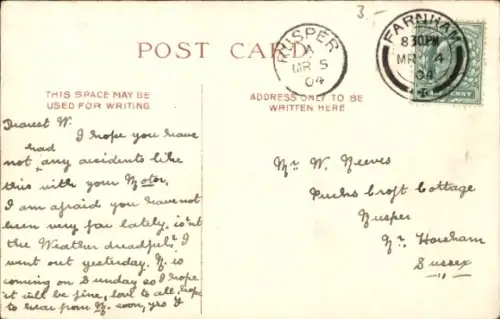 3.-
POST CARD
RUSPER
A
MR 5
04
FARNHAM
8 30PM
MR 4
04
THIS SPACE MAY BE
USED FOR WRITING
ADDRESS ONLY TO BE
WRITTEN HERE
Dearest W.
I hope you have
had
not any accidents like
this with your Motor,
I am afraid you have not
been very far lately, is'nt
the Weather dreadful? I
went out yesterday. N. is
coming on Sunday so I hope
it will be fine, love to all, hope
to hear from N. soon, yrs
Mr W. Neeves
Pucks Croft Cottage
Rusper
Nr. Horsham
Sussex